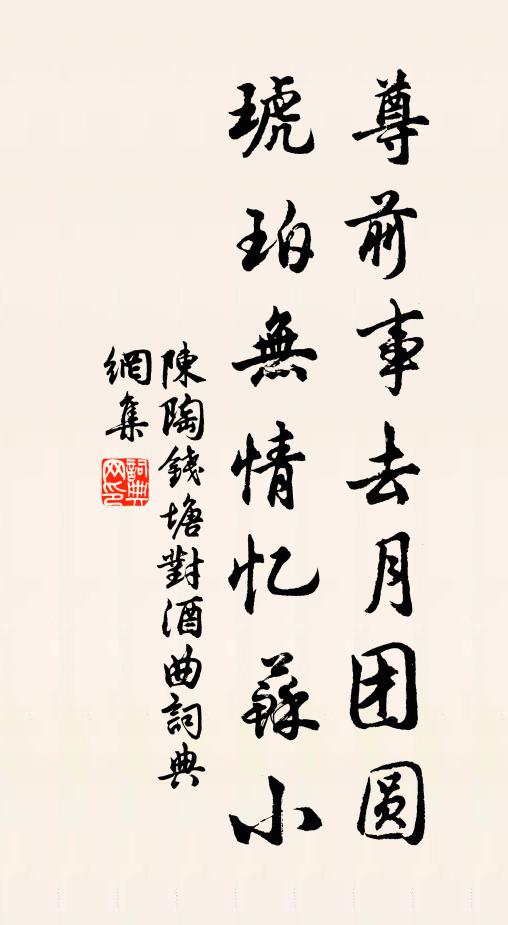 尊前事去月团圆
琥珀無情忆蘇小
陳陶錢塘對酒曲詞典
網集
詞典
网印